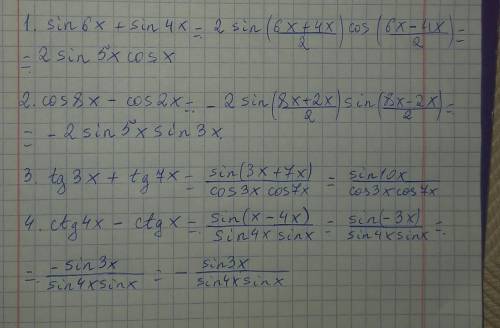 1. sin6x + sin4x = 2 sin(6x+4x/2) cos(6x-4x/2) =
= 2 sin 5x cosx
2. cos8x - cos2x = - 2 sin(8x+2x/2) sin(8x-2x/2) =
= - 2 sin5x sin3x.
3. tg3x + tg7x = sin(3x+7x)/cos3x cos7x = sin10x/cos3x cos7x
4. ctg4x - ctgx = sin(x-4x)/sin4x sinx = sin(-3x)/sin4x sinx =
= -sin3x/sin4x sinx = - sin3x/sin4x sinx